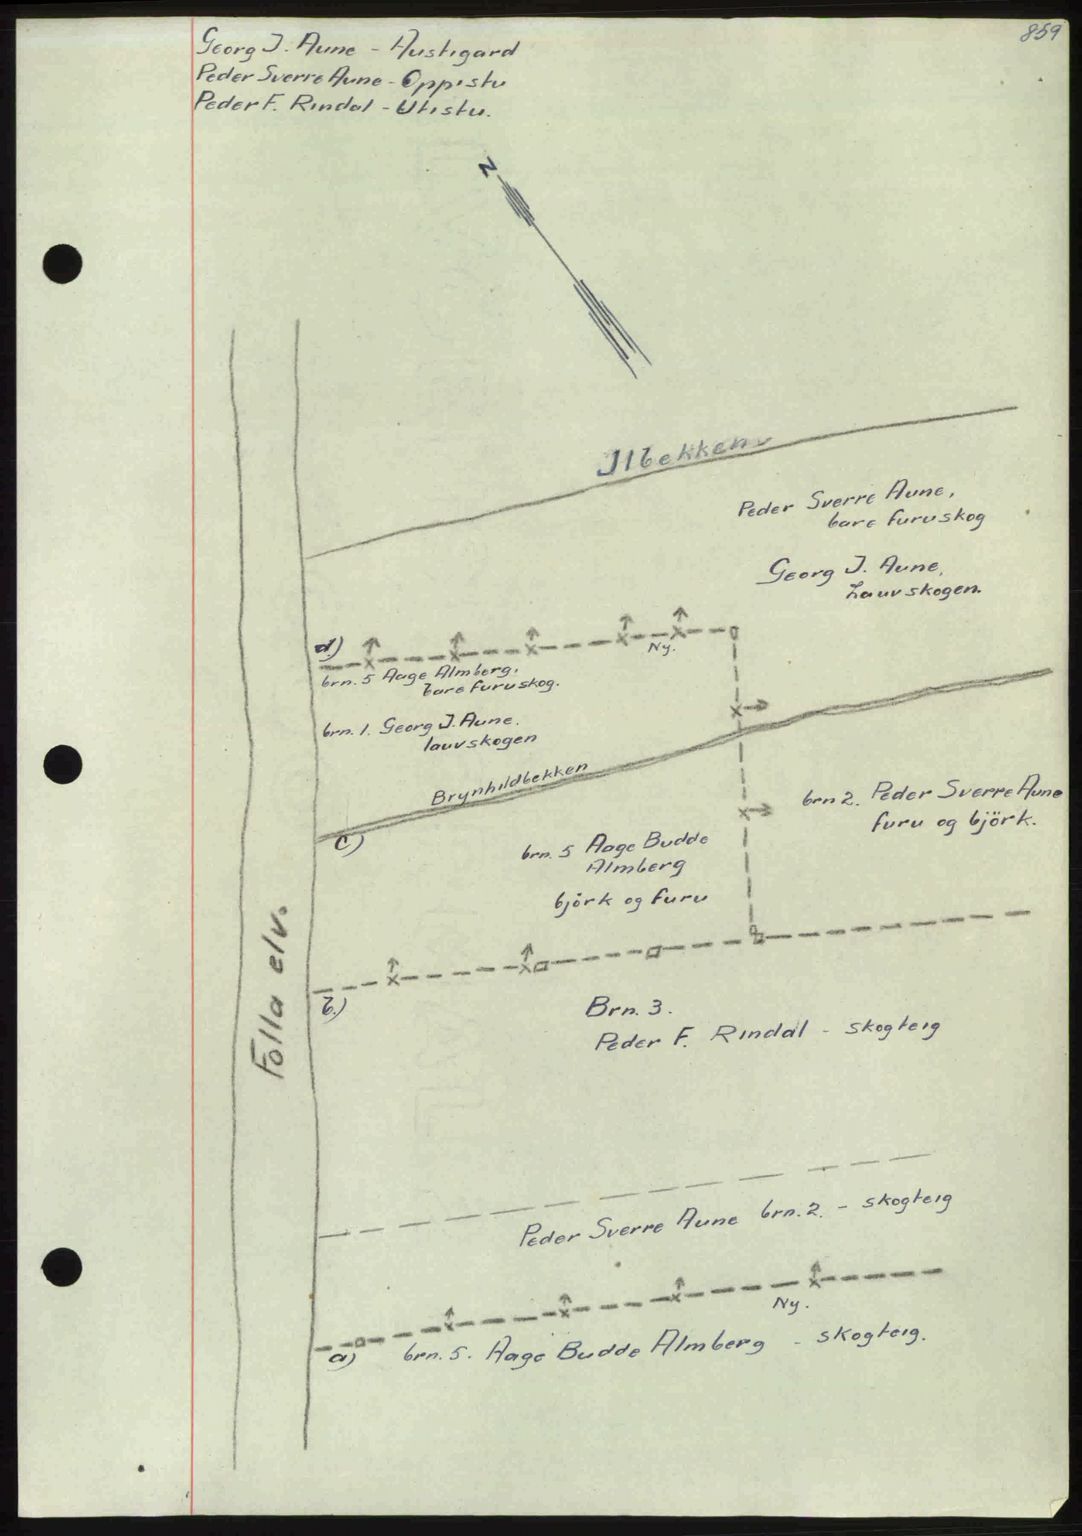 859
Georg J. Aune - Austigard
Peder Sverre Aune - Oppistu
Peder F. Rindal - Utistu.
N
Ilbekken
Peder Sverre Aune,
bare furuskog
Georg J. Aune,
Lauvskogen.
d.)
Ny.
brn. 5 Aage Almberg,
bare furuskog.
brn. 1. Georg J. Aune.
lauvskogen
Brynhildbekken
c)
brn 2. Peder Sverre Aune
furu og björk.
brn. 5 Aage Budde
Almberg
björk og furu
Folla elv.
b.)
Brn. 3.
Peder F. Rindal - skogteig
Peder Sverre Aune brn. 2. - skogteig
Ny.
a)
brn. 5. Aage Budde Almberg - skogteig.